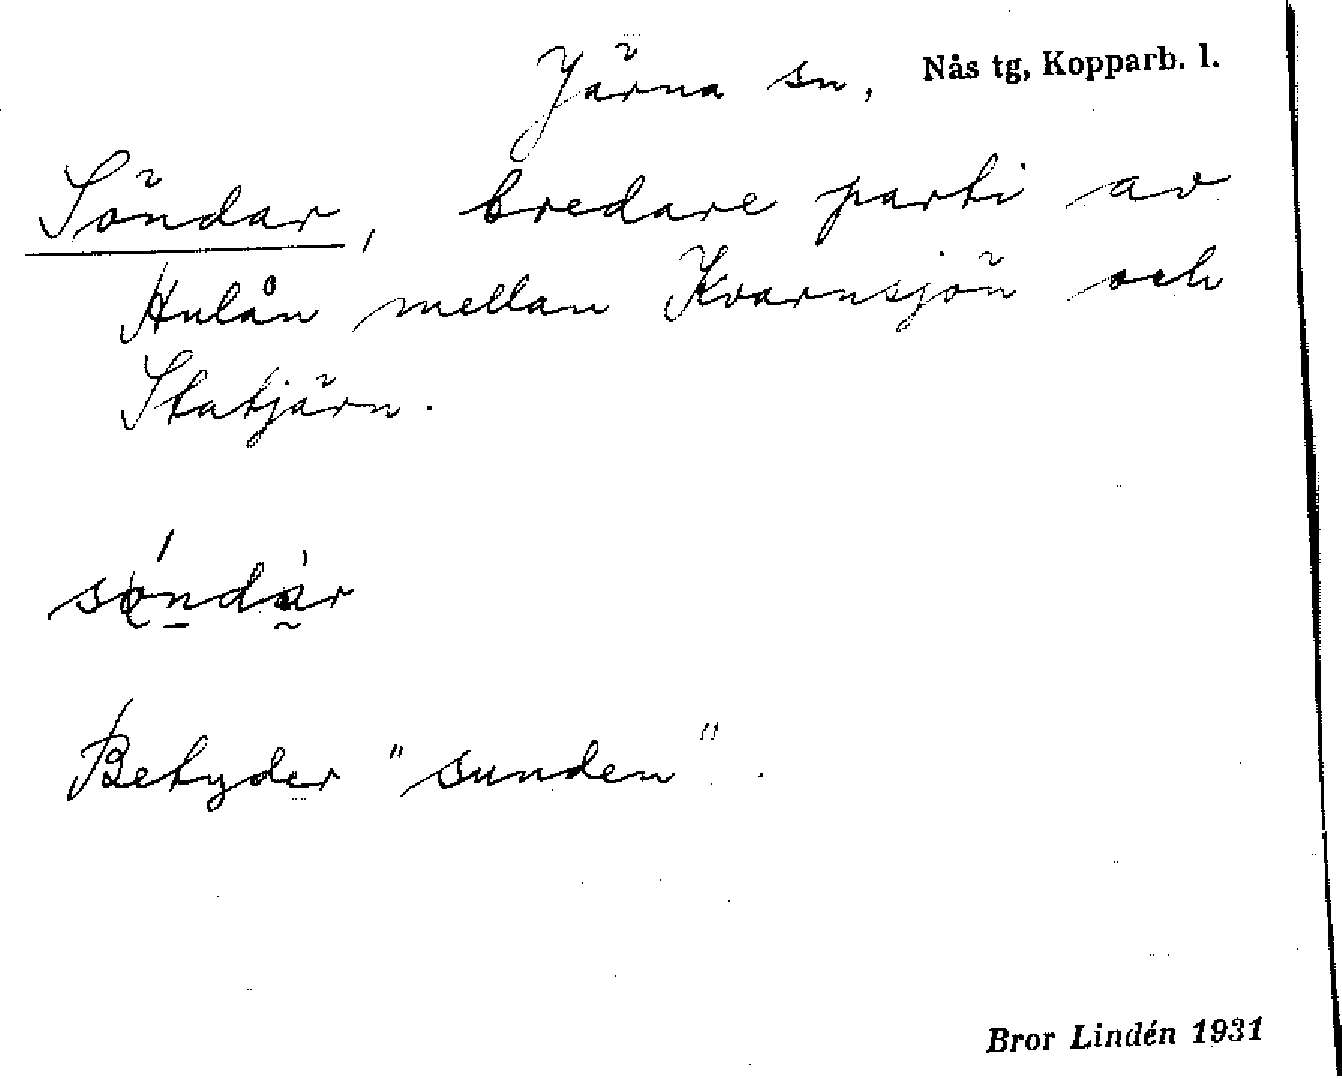 Järna sn, Nås tg, Kopparb. l.
Söndar, bredare parti av
Hulån mellan Kvarnsjön och
Statjärn.
söndar
Betyder "sunden".
Bror Lindén 1931